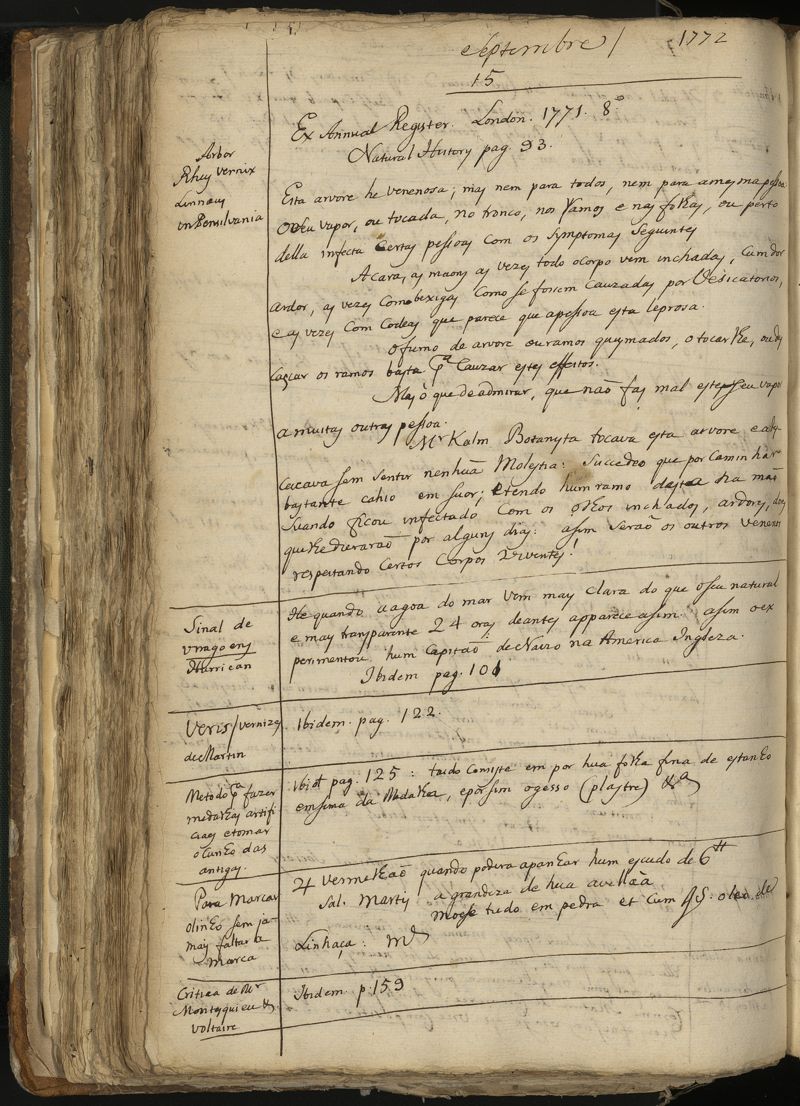 Septembre / 1772
15
Ex Annual Register. London. 1771. 8º
Natural History pag 93.
Arbor
Rhus vernix
Linnaeus
in Pensilvania
Esta arvore he venenosa; mas nem para todos, nem para a mesma pessoa
O seu vapor, ou tocada, no tronco, nos ramos e nas folhas, ou perto
della infecta certas pessoas com os symptomas seguintes
A cara, as maons as vezes todo o corpo vem inchadas, cum dor
ardor, as vezes com bexigas como se fossem cauzadas por Vesicatorios,
e as vezes com codeas que parece que a pessoa esta leprosa.
O fumo de arvore ou ramos queymados, o tocarlhe, ou
caçcar os ramos basta pª cauzar estes effeitos.
Mas o que he de admirar, que naõ fas mal este seu vapor
a muitas outras pessoa.
Mr Kalm Botanysta tocava esta arvore e
cacava sem sentir nenhuã Molestia: Succedeo que por caminhar
bastante cahio em suor; e tendo hum ramo desta na maõ
suando ficou infectado com os olhos inchados, ardores,
que lhe duraraõ por alguns dias: asim seraõ os outros venenos
respeitando certos corpos viventes!
Sinal de
viragoens
Hurrican
He quando a agoa do mar vem mays clara do que o seu natural
e mays transparente 24 oras deantes apparece asim: asim o ex
perimentou hum capitaõ de Navio na America Ingleza.
Ibidem pag. 101
Veris/vernizes
de Martin
Ibidem. pag. 122.
Metodo pª fazer
medalhas artifi
ciaes e tomar
o cunho das
antigas.
Ibid pag. 125: tudo consiste em por hua folha fina de estanho
em sima da Medalha, e por sim o gesso (plastre) &ª
Para Marcar
o linho sem ja-
mays faltar a
marca
♃ Vermelhaõ quando podera apanhar hum escudo de 6 tt
Sal. Martis a grandeza de hua avellaã
Moese tudo em pedra et cum QS. oleo de
Linhaça: M
Critica de Mr
Montesquieu &
Voltaire
Ibidem p. 159